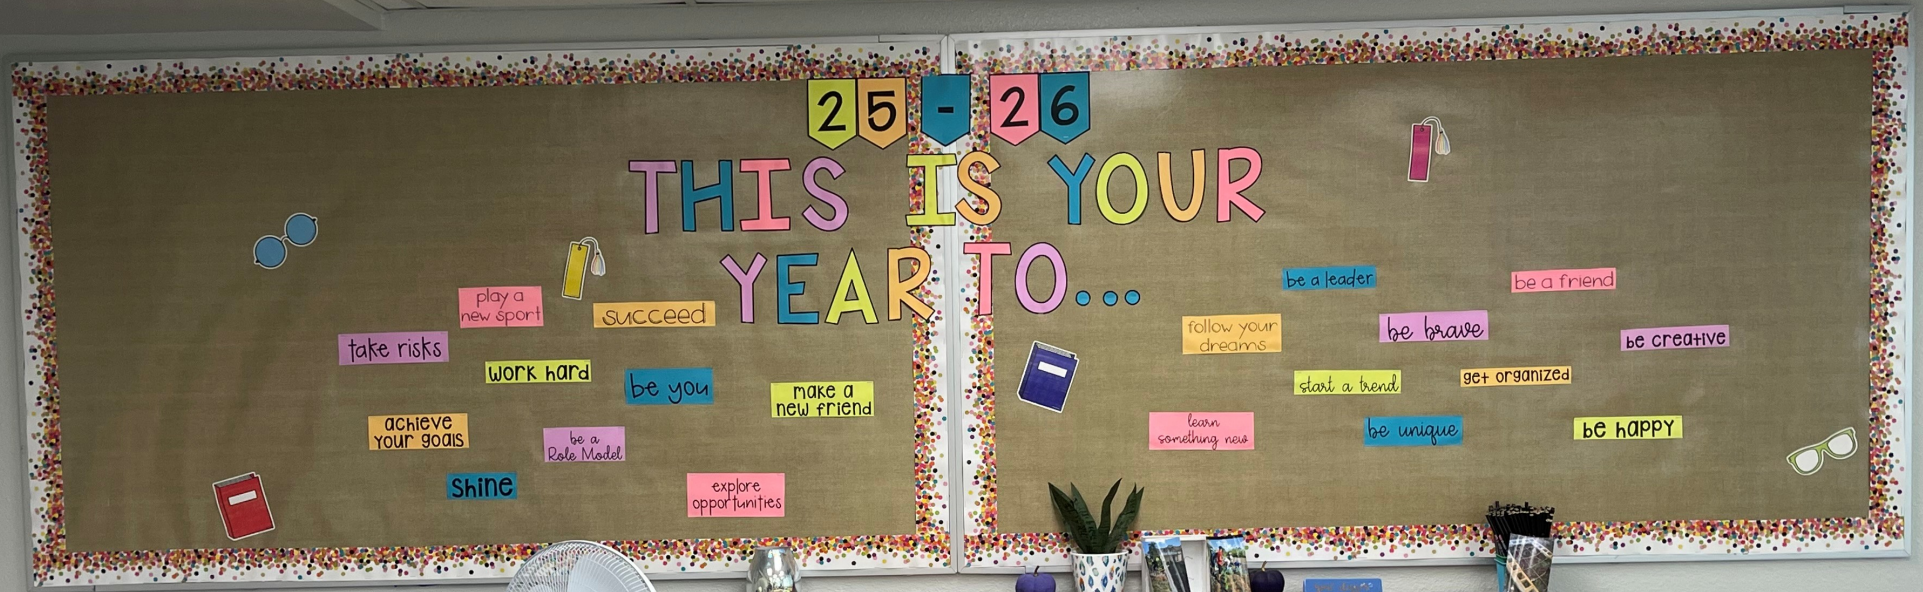 25-26
THIS IS YOUR
YEAR TO...
play a
new sport
succeed
take risks
work hard
be you
make a
new friend
achieve
your goals
be a
Role Model
shine
explore
opportunities
be a leader
be a friend
follow your
dreams
be brave
be creative
start a trend
get organized
learn
something new
be unique
be happy